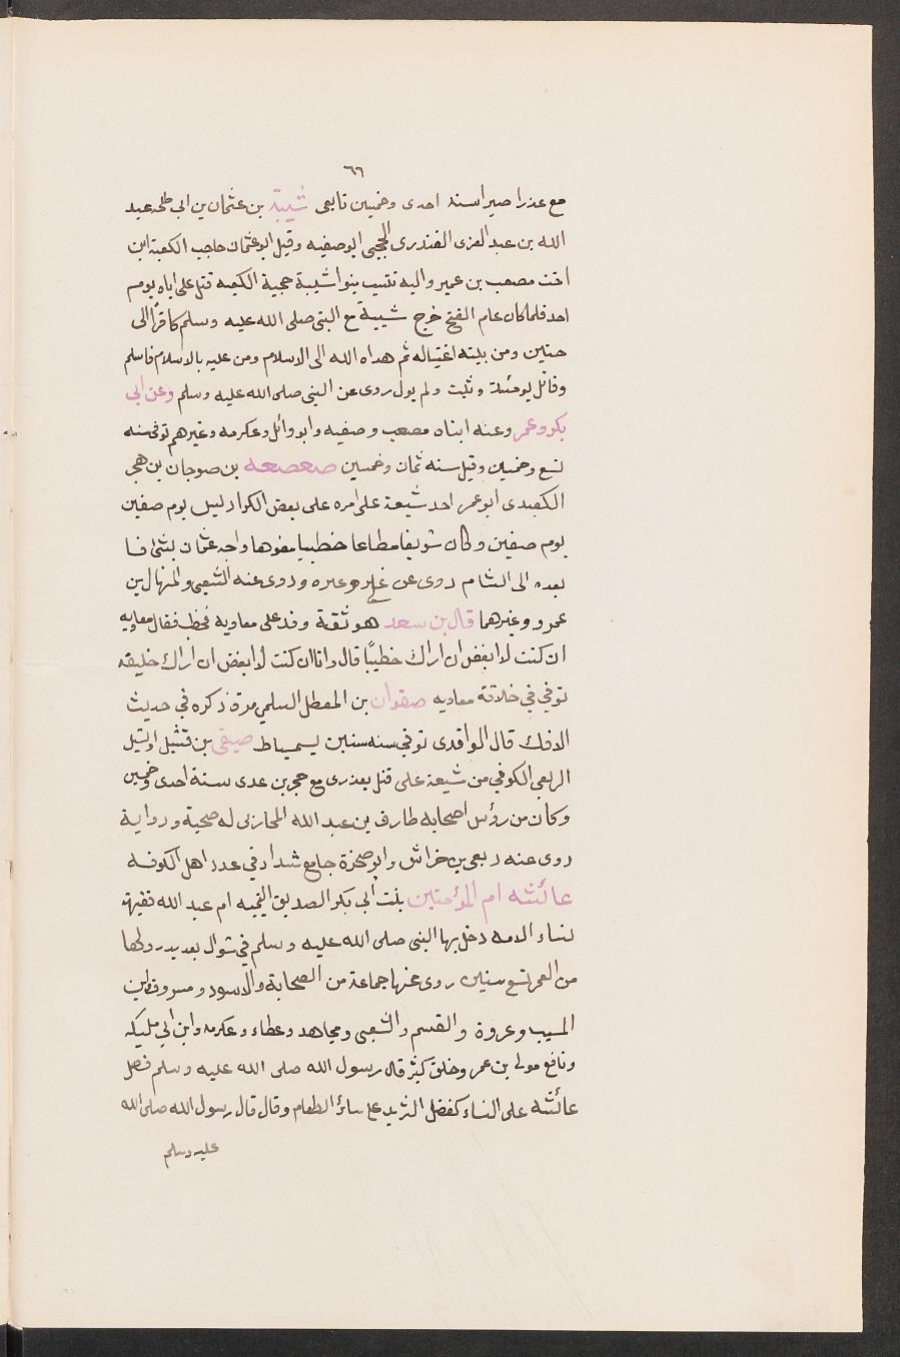 ٦٦
مع عذرا صبرا سنة احدى وخمسين تابعى شيبة بن عثمان بن ابى طلحه عبد
الله بن عبد العزى العبدرى الحجبى ابو صفيه وقيل ابو عثمان حاجب الكعبة ابن
اخت مصعب بن عمير واليه تنتسب بنوا شيبة حجبة الكعبه قتل على اباه يوم
احد فلما كان عام الفتح خرج شيبية مع النبى صلى الله عليه وسلم كافرا الى
حنين ومن بيته اغتياله ثم هداه الله الى الاسلام ومن عليه بالاسلام فاسلم
وقاتل يومئذ وثبت ولم يول روى عن النبى صلى الله عليه وسلم وعن ابى
بكر وعمر وعنه ابناه مصعب وصفيه وابو وائل وعكرمه وغيرهم توفى سنه
تسع وخمسين وقيل سنه ثمان وخمسين صعصعه بن صوحان بن حجر
ابو عمر احد شيعة على امره على بعض الكراديس يوم صفين
يوم صفين وكان شريفا مطاعا خطيبا مفوها واجه عثمان بشئ
بعده الى الشام روى عن على وغيره وروى عنه الشعبى والمنهال بن
عمرو وغيرهما قال بن سعد هو ثقة وفد على معاويه فخطب فقال معاويه
ان كنت لابغض ان اراك خطيبًا قال وانا ان كنت لابغض ان اراك خليفه
توفي في خلافة معاويه صفوان بن المعطل السلمي مرة ذكره في حديث
الافك قال الواقدى توفي سنه ستين بسميساط صيفى بن
الربعى الكوفي من شيعة على قتل بعذرى مع حجر بن عدى سنة احدى وخمسين
وكان من رؤس اصحابه طارق بن عبد الله المحاربى له صحبة ورواية
روى عنه ربعى بن خراش وابو صخرة جامع شداد في عدد اهل الكوفه
عائشه ام المؤمنين بنت أبى بكر الصديق التيميه ام عبد الله فقيهة
نساء الامه دخل بها النبى صلى الله عليه وسلم في شوال بعد بدر ولها
من العمر تسع سنين روى عنها جماعة من الصحابة والاسود ومسروق وابن
المسيب وعروة والقسم والشعبى ومجاهد وعطاء وعكرمه وابن ابي مليكه
ونافع مولى بن عمر وخلق كثير قال رسول الله صلى الله عليه وسلم فضل
عائشه على النساء كفضل الثريد على سائر الطعام وقال قال رسول الله صلى الله
عليه وسلم